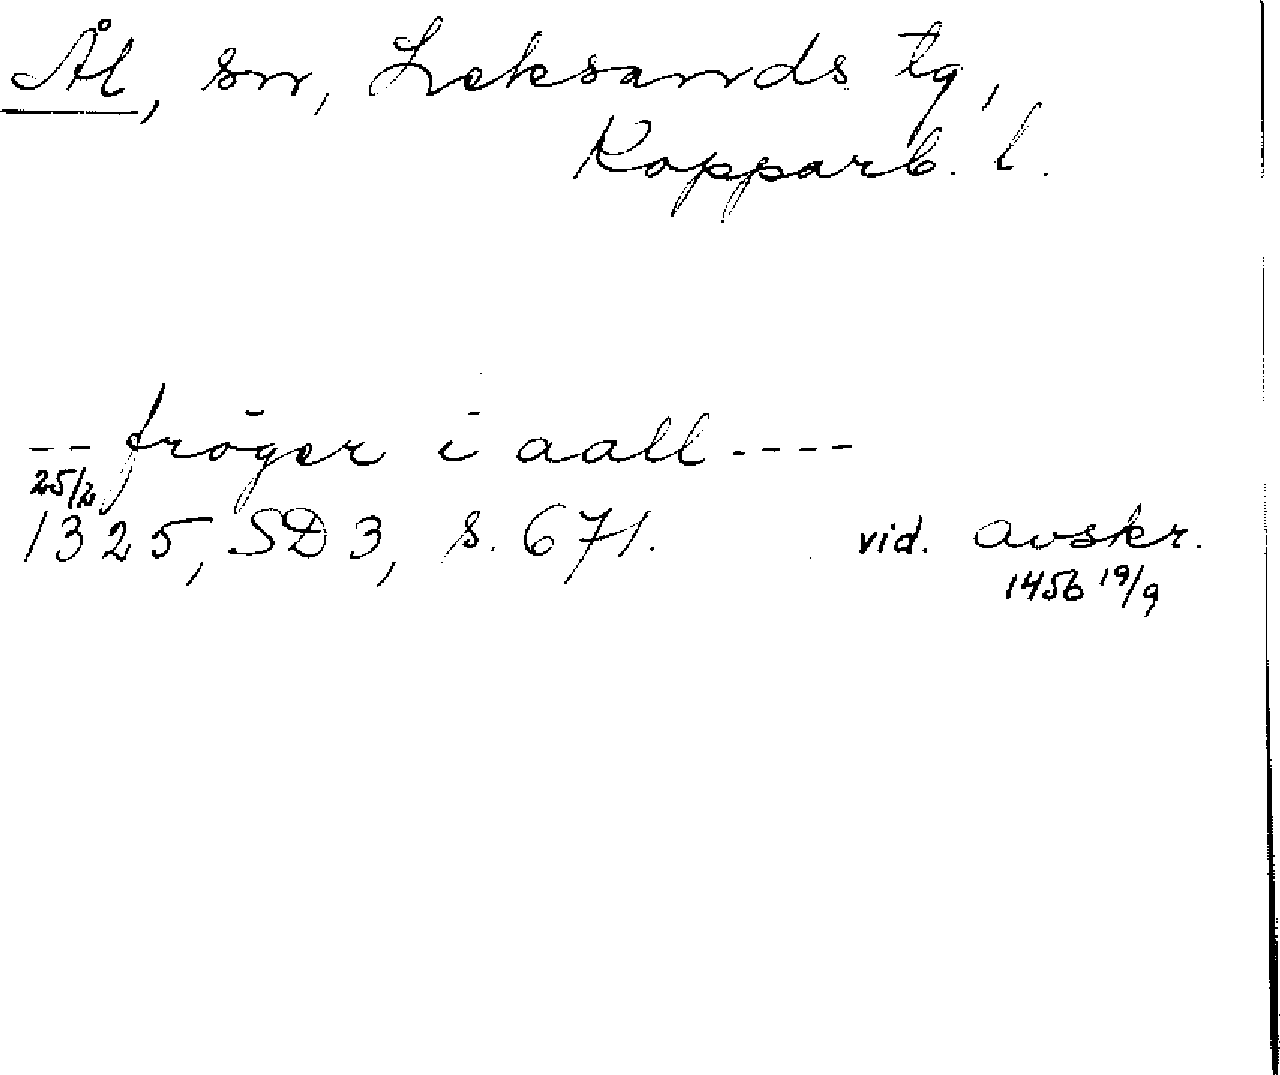 Ål, sn, Leksands tg,
Kopparb. l.
-- fröger i aall ----
25/2
1325, SD 3, s. 671. vid. avskr.
1456 19/9